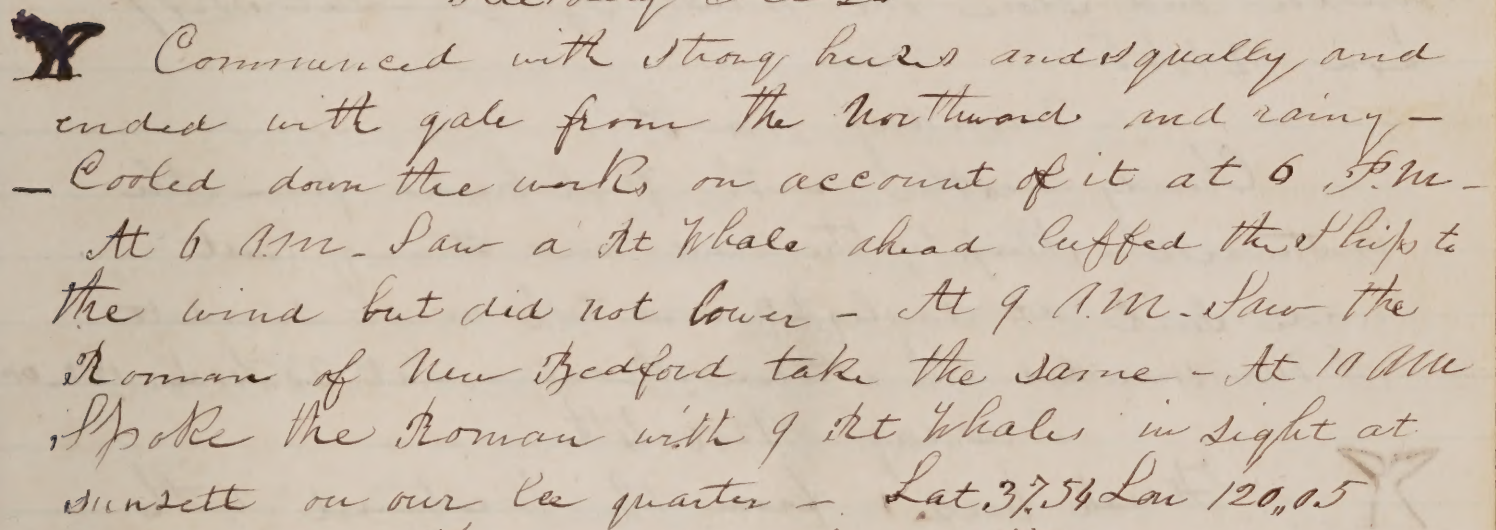 Commenced with strong brezs and squally, and
ended with gale from the Northward and rainy -
- Cooled down the works on account of it at 6 P.M -
At 6 A.M. - Saw a Rt Whale ahead luffed the Ship to
the wind but did not lower - At 9 A.M. - Saw the
Roman of New Bedford take the same - At 10 AM
Spoke the Roman with 9 Rt Whales in sight at
sunsett on our lee quarter - Lat 37.54 Lon 120,,05